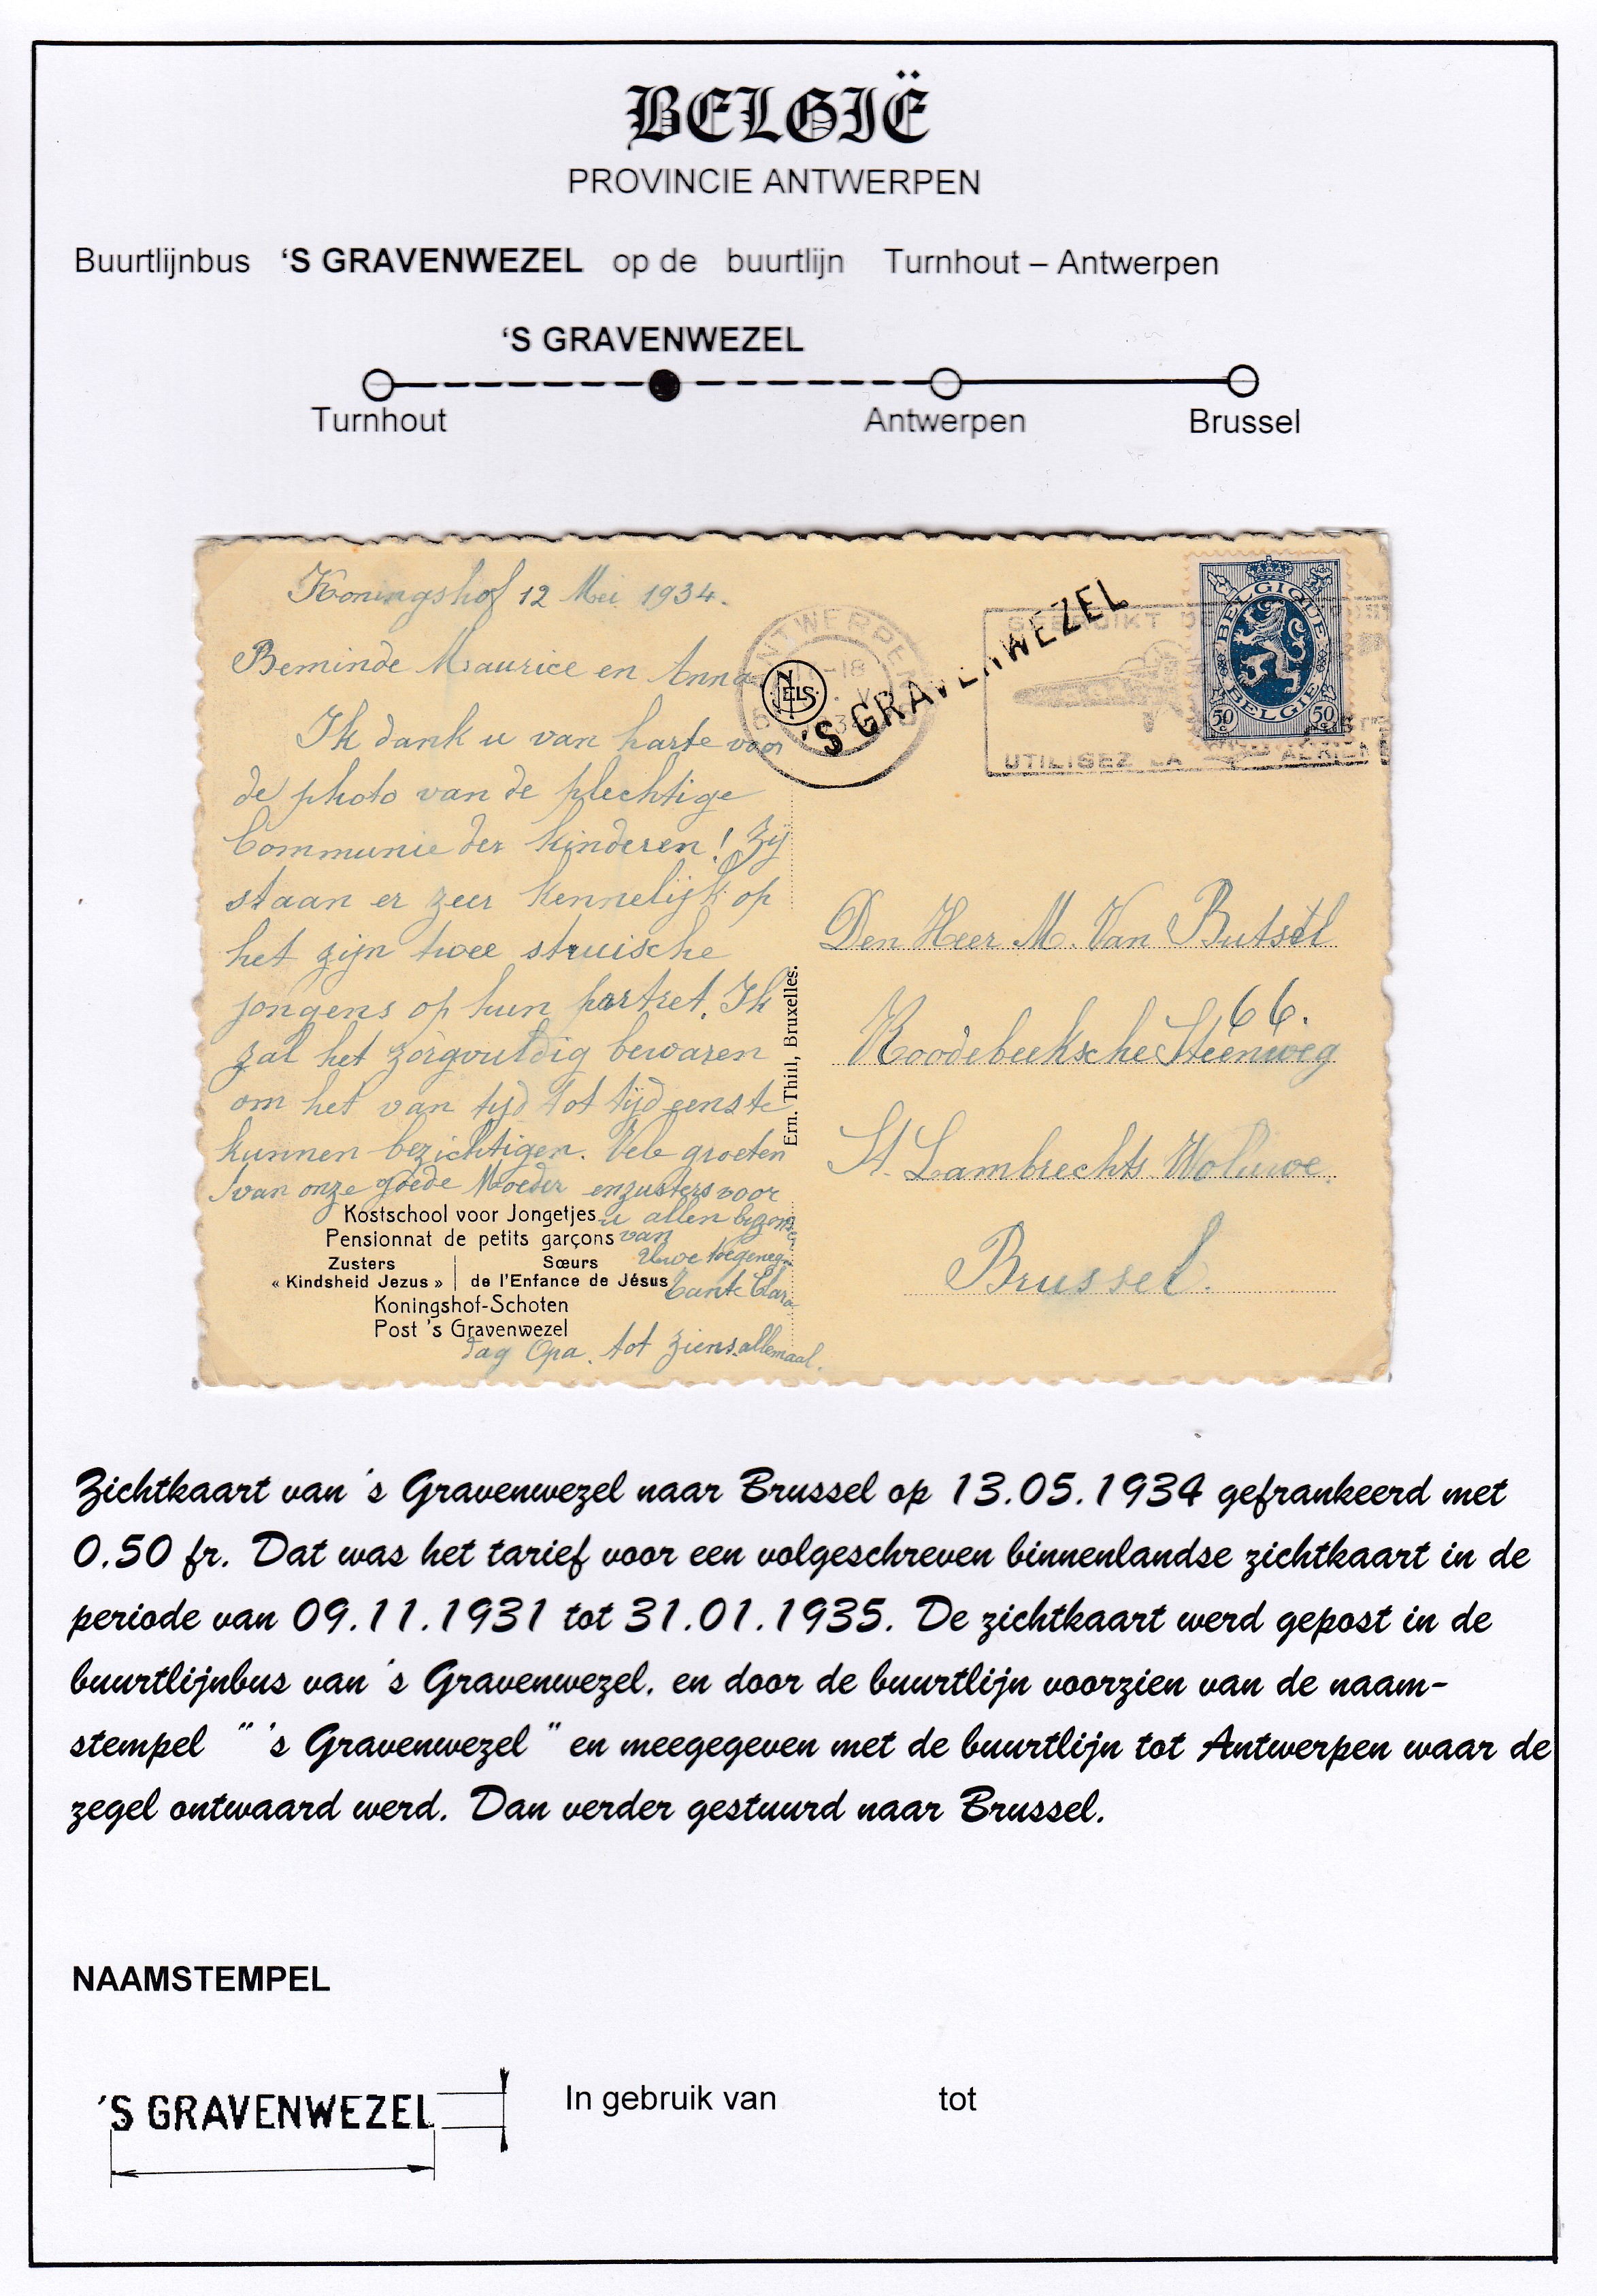 BELGIË
PROVINCIE ANTWERPEN
Buurtlijnbus ‘S GRAVENWEZEL op de buurtlijn Turnhout – Antwerpen
‘S GRAVENWEZEL
Turnhout Antwerpen Brussel
Koningshof 12 Mei 1934.
Beminde Maurice en Anna
Ik dank u van harte voor
de photo van de plechtige
Communie der kinderen! Zij
staan er zeer kennelijk op
het zijn twee struische
jongens op hun portret. Ik
zal het zorgvuldig bewaren
om het van tijd tot tijd eens te
kunnen bezichtigen. Vele groeten
van onze goede Moeder en zusters voor
u allen
van
Uwe toegenegen
Tante Clara
dag Opa. tot ziens allemaal.
Kostschool voor Jongetjes
Pensionnat de petits garçons
Zusters Sœurs
« Kindsheid Jezus » de l'Enfance de Jésus
Koningshof-Schoten
Post 's Gravenwezel
Ern. Thill, Bruxelles.
NELS
ANTWERPEN
-18
'S GRAVENWEZEL
GEBRUIKT DE
UTILISEZ LA
BELGIQUE
BELGIE
50 c 50 c
Den Heer M. Van Butsel
66.
Roodebeeksche Steenweg
St. Lambrechts Woluwe.
Brussel.
Zichtkaart van 's Gravenwezel naar Brussel op 13.05.1934 gefrankeerd met
0,50 fr. Dat was het tarief voor een volgeschreven binnenlandse zichtkaart in de
periode van 09.11.1931 tot 31.01.1935. De zichtkaart werd gepost in de
buurtlijnbus van 's Gravenwezel, en door de buurtlijn voorzien van de naam-
stempel " 's Gravenwezel " en meegegeven met de buurtlijn tot Antwerpen waar de
zegel ontwaard werd. Dan verder gestuurd naar Brussel.
NAAMSTEMPEL
'S GRAVENWEZEL
In gebruik van tot